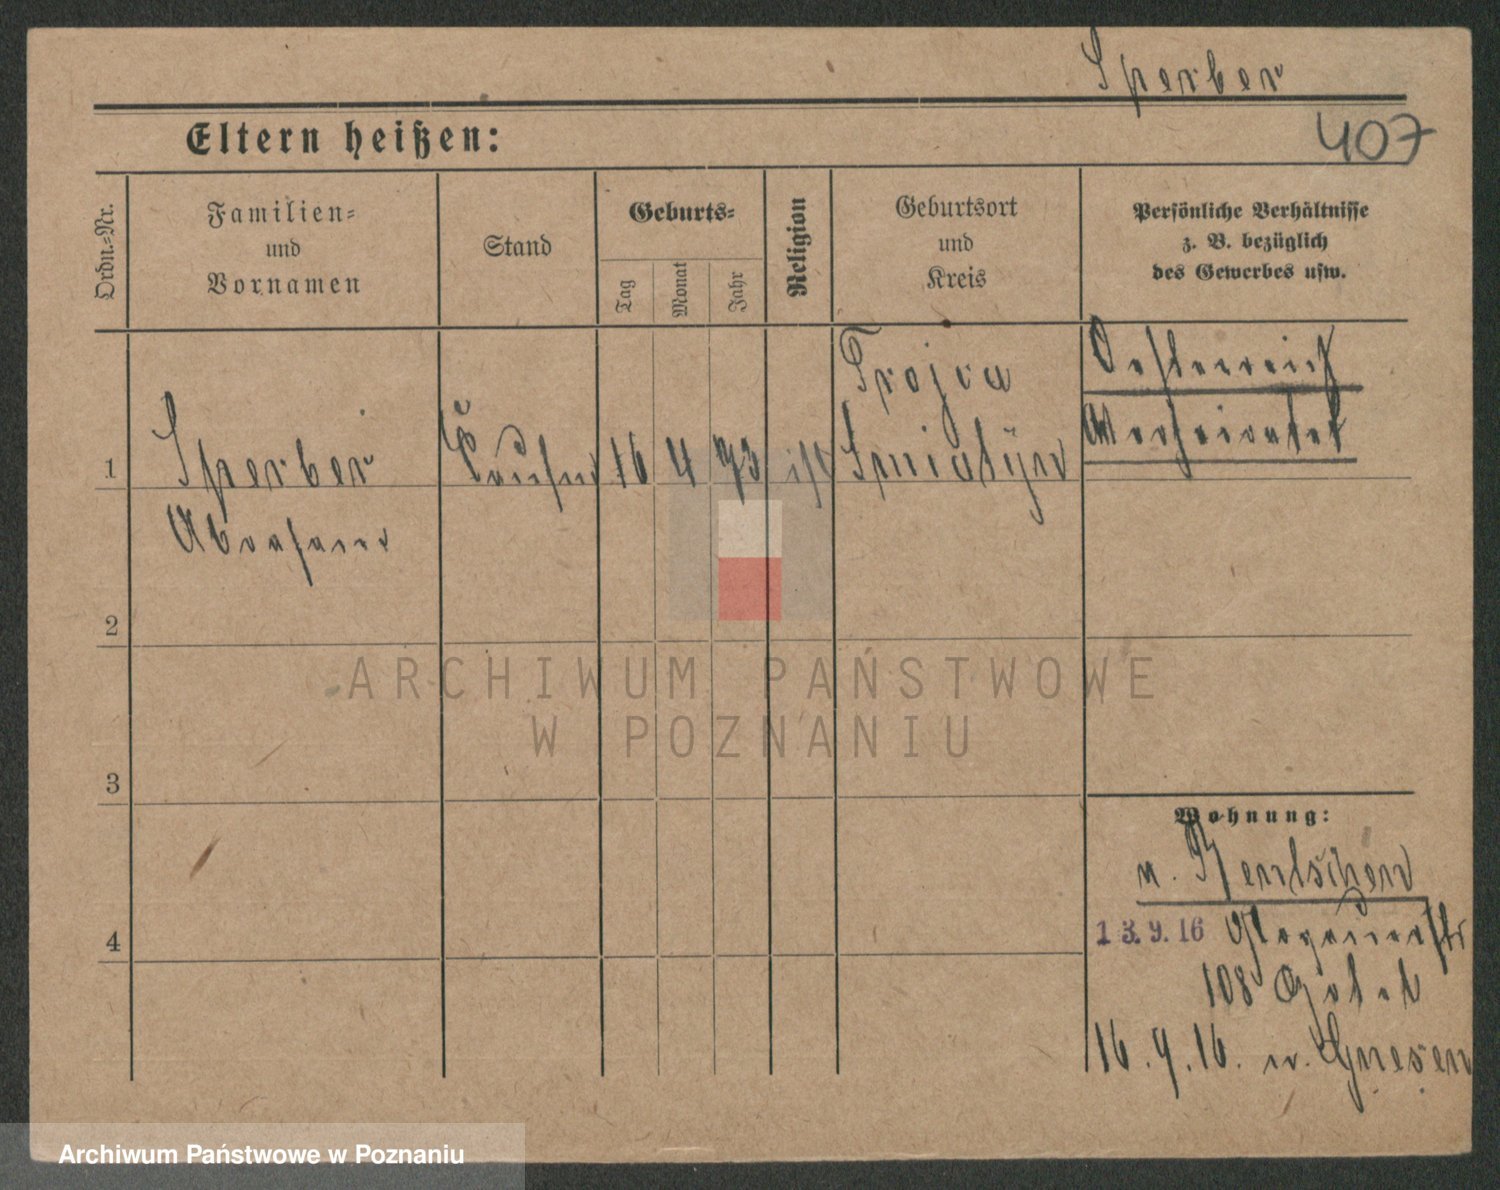 Sperber
407
Eltern heißen:
Ordn.-Nr.
Familien-
und
Vornamen
Stand
Geburts-
Tag
Monat
Jahr
Religion
Geburtsort
und
Kreis
Persönliche Verhältnisse
z. B. bezüglich
des Gewerbes usw.
1
Sperber
Abraham
Kaufm
16
4
73
Trojca
Sniatyn
Oesterreich
Verheiratet
2
3
4
Wohnung:
n. Bentschen
13.9.16
108 Hotel
16.9.16. n. Gnesen
ARCHIWUM PAŃSTWOWE
W POZNANIU
Archiwum Państwowe w Poznaniu